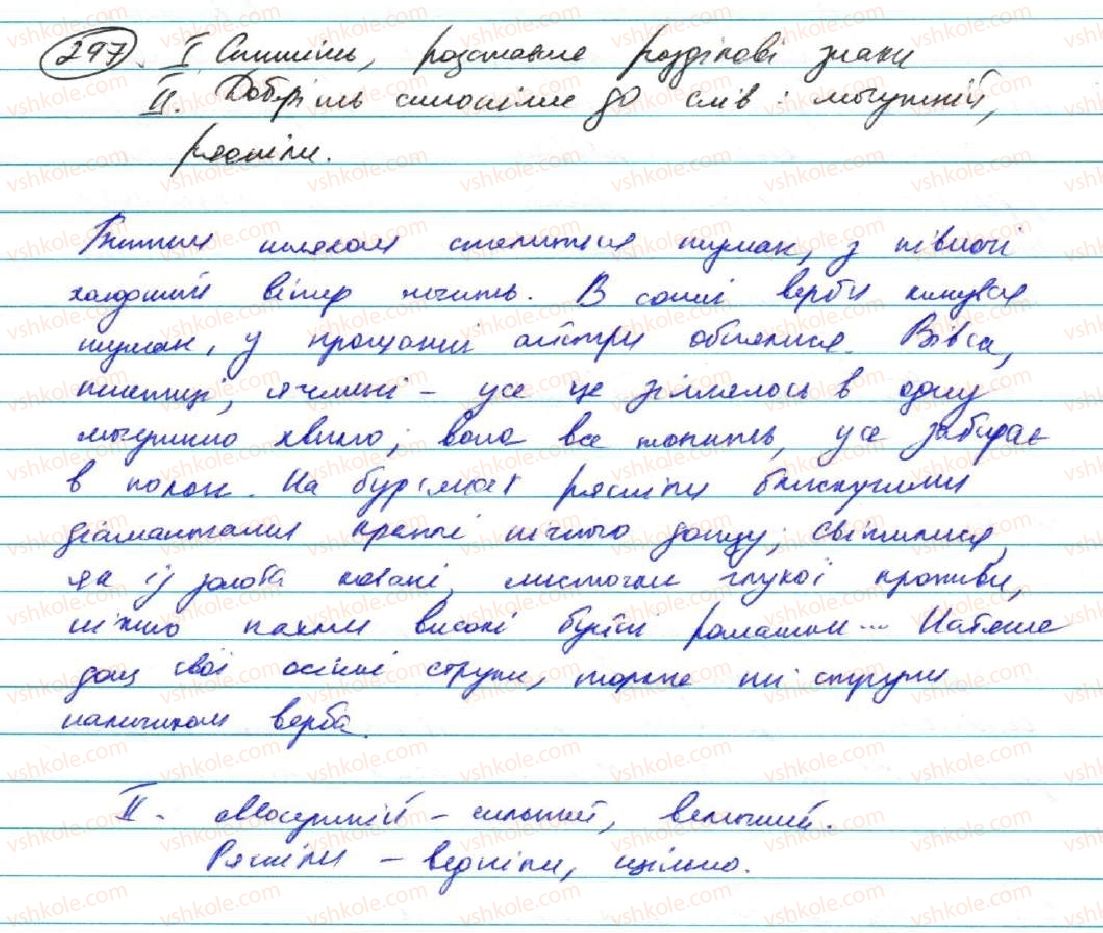 297. I Спишіть, розставте розділові знаки
II. Доберіть синоніми до слів: могутній,
рясніли.
Битим шляхом стелиться туман, з півночі
холодний вітер мчить. В сонні верби кинувся
туман, у прощанні айстри обнялися. Вівса,
пшениці, ячмені – усе це злилось в одну
могутню хвилю; вона все топить, усе забирає
в полон. На бур'янах рясніли блискучими
діамантами краплі нічного дощу; світилися,
як із золота ковані, листочки глухої кропиви,
ніжно пахли високі буйні ромашки... Натягне
дощ свої осінні струни, торкне ті струни
пальчиком верба.
II. Могутній – сильний, великий.
Рясніли – , щільно.